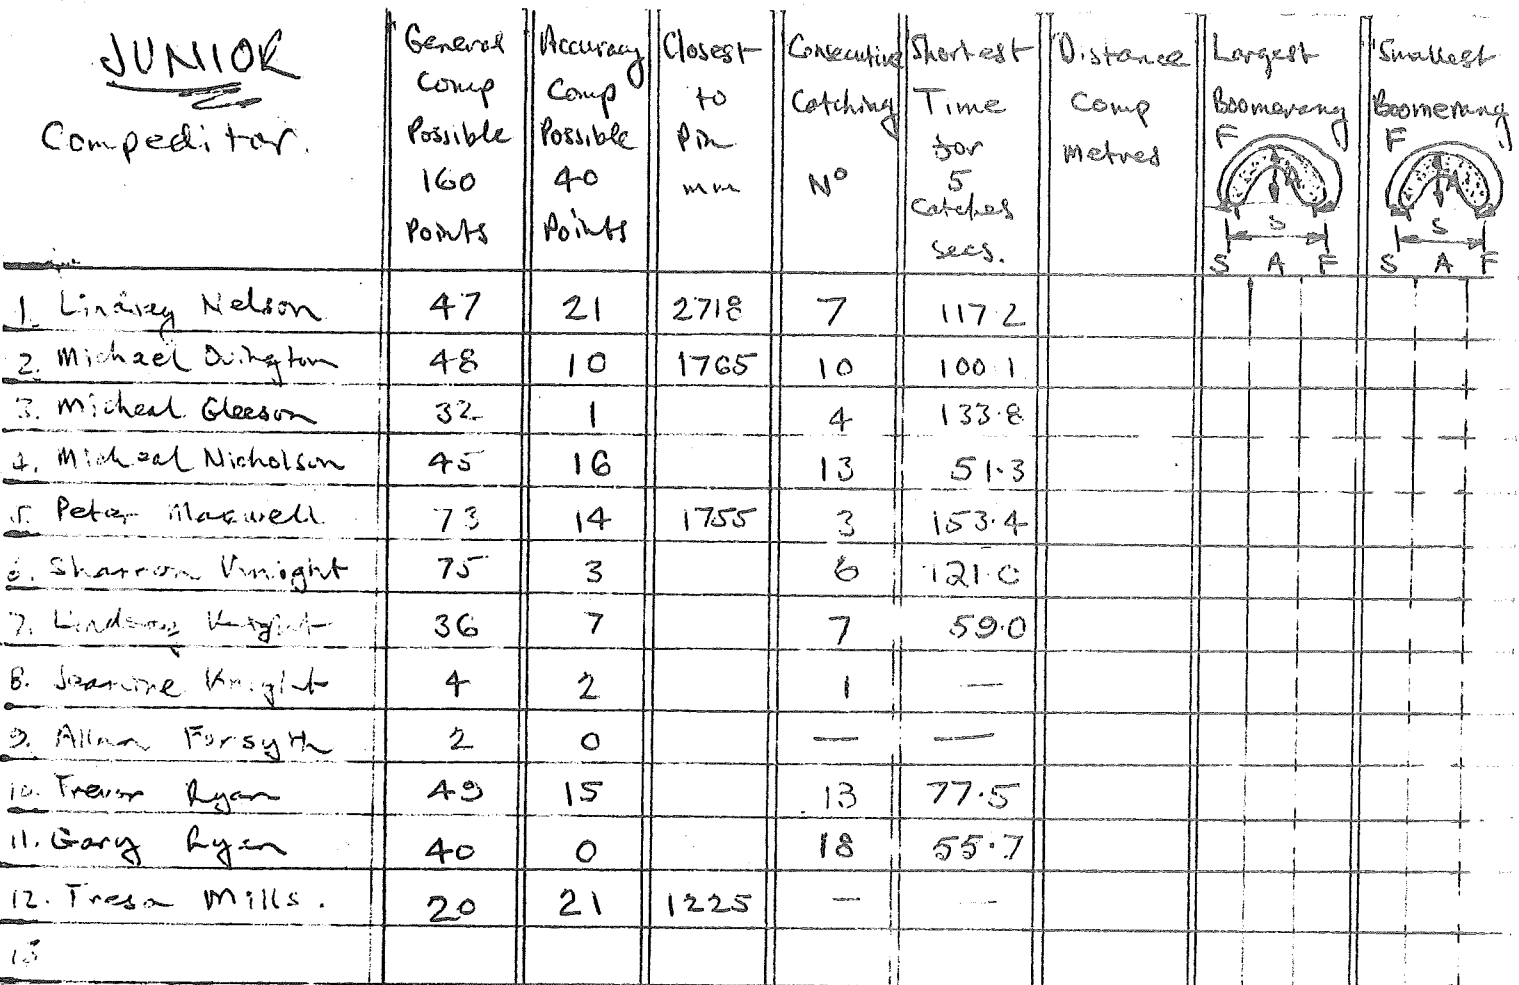 JUNIOR
Compeditor.
General Comp Possible 160 Points
Accuracy Comp Possible 40 Points
Closest to Pin mm
Consecutive Catching Nº
Shortest Time for 5 Catches secs.
Distance Comp Metres
Largest Boomerang F A S S A F
Smallest Boomerang F A S S A F
1. Lindsey Nelson 47 21 2718 7 117.2
2. Michael Ovington 48 10 1765 10 100.1
3. Micheal Gleeson 32 1 4 133.8
4. Micheal Nicholson 45 16 13 51.3
5. Peter Maxwell 73 14 1755 3 153.4
6. Sharron Knight 75 3 6 121.0
7. Lindsay Knight 36 7 7 59.0
8. Jeanine Knight 4 2 1 —
9. Allan Forsyth 2 0 — —
10. Trevor Ryan 49 15 13 77.5
11. Gary Ryan 40 0 18 55.7
12. Tresa Mills. 20 21 1225 — —
13